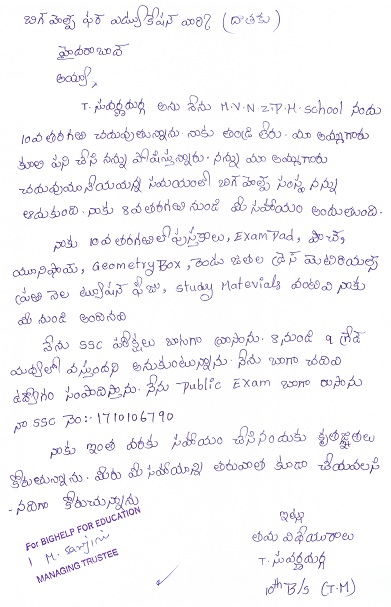 బిగ్ హెల్ప్ ఫర్ ఎడ్యుకేషన్ వారికి (దాతకు)
హైదరాబాద్
అయ్యా,
T. సువర్ణదుర్గ అను నేను M.V.N Z.P.H. school నందు
10వ తరగతి చదువుతున్నాను. నాకు తండ్రి లేరు. మా అమ్మగారు
కూలి పని చేసి నన్ను పోషిస్తున్నారు. నన్ను మా అమ్మగారు
సమయంలో బిగ్ హెల్ప్ సంస్థ నన్ను
ఆదుకుంది. నాకు 8వ తరగతి నుండి మీ సహాయం అందుతుంది.
నాకు 10వ తరగతిలో పుస్తకాలు, Exam Pad, పౌచ్,
యూనిఫామ్, Geometry Box, రెండు జతల డ్రెస్ మెటిరియల్స్
ప్రతి నెల ట్యూషన్ ఫీజు, study Materials వంటివి నాకు
మీ నుండి అందినవి
నేను SSC పరీక్షలు బాగుగా వ్రాసాను. 8 నుండి 9 గ్రేడ్
మధ్యలో వస్తుందని అనుకుంటున్నాను. నేను బాగా చదివి
ఉద్యోగం సంపాదిస్తాను. నేను Public Exam బాగా రాసాను
నా SSC నెం:- 1710106790
నాకు ఇంత వరకు సహాయం చేసినందుకు కృతజ్ఞతలు
కోరుతున్నాను. మీరు మీ సహాయాన్ని తరువాత కూడా చేయవలసి
- నదిగా కోరుచున్నాను
ఇట్లు
తమ విధేయురాలు
T. సువర్ణదుర్గ
10th B/S (T.M)
For BIGHELP FOR EDUCATION
MANAGING TRUSTEE